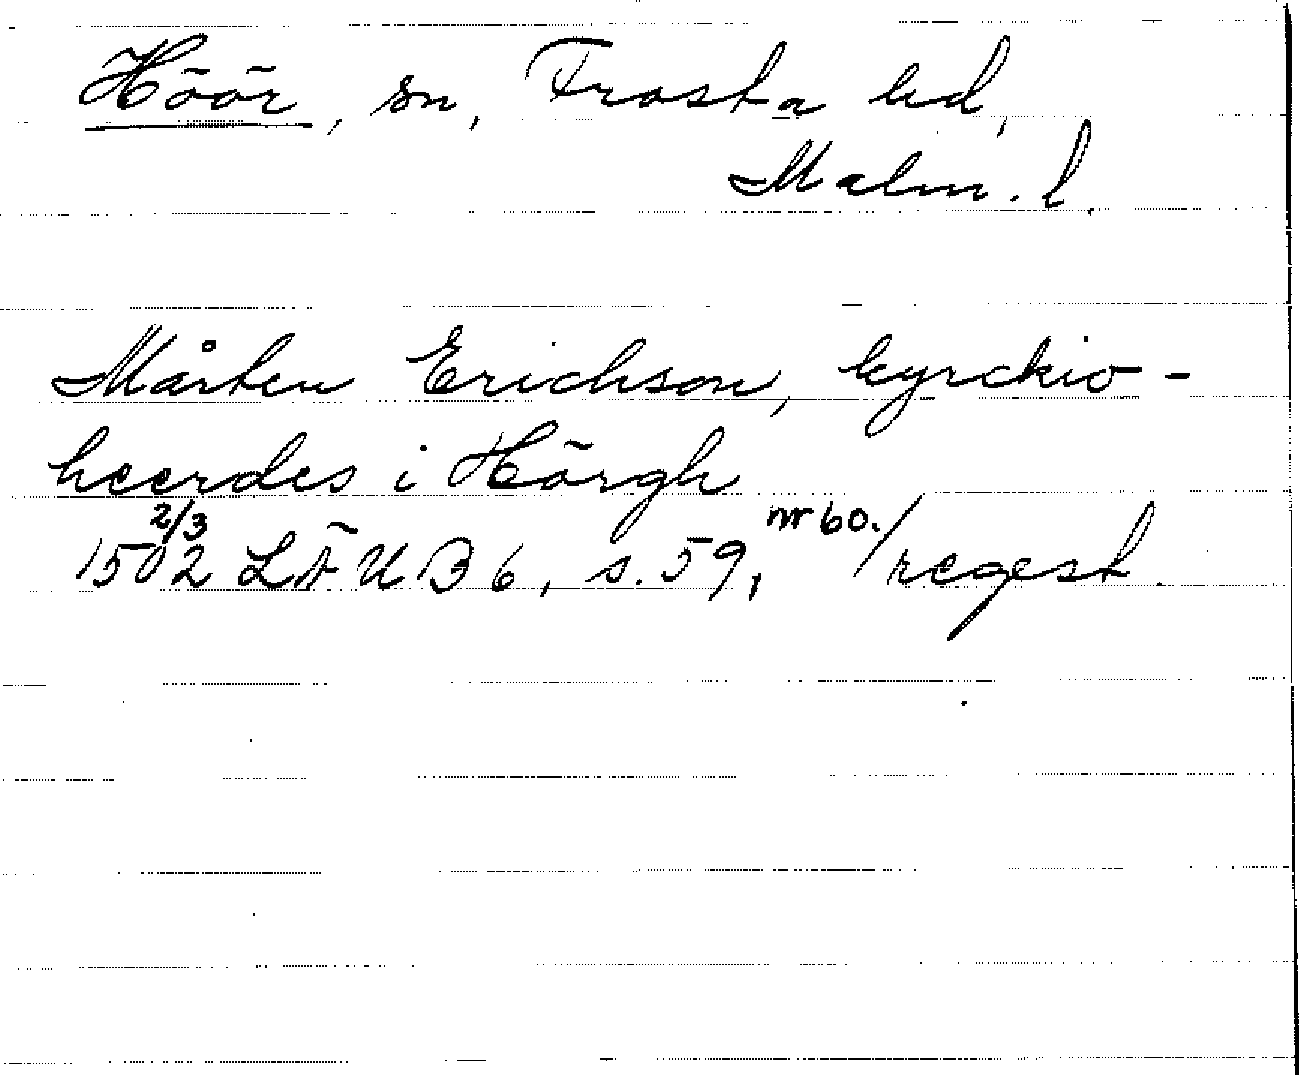 Höör, sn, Frosta hd,
Malm. l.
Mårten Erichson, kyrckio-
heerdes i Hörgh
2/3 nr 60.
1502 LÄUB 6, s. 59, / regest.